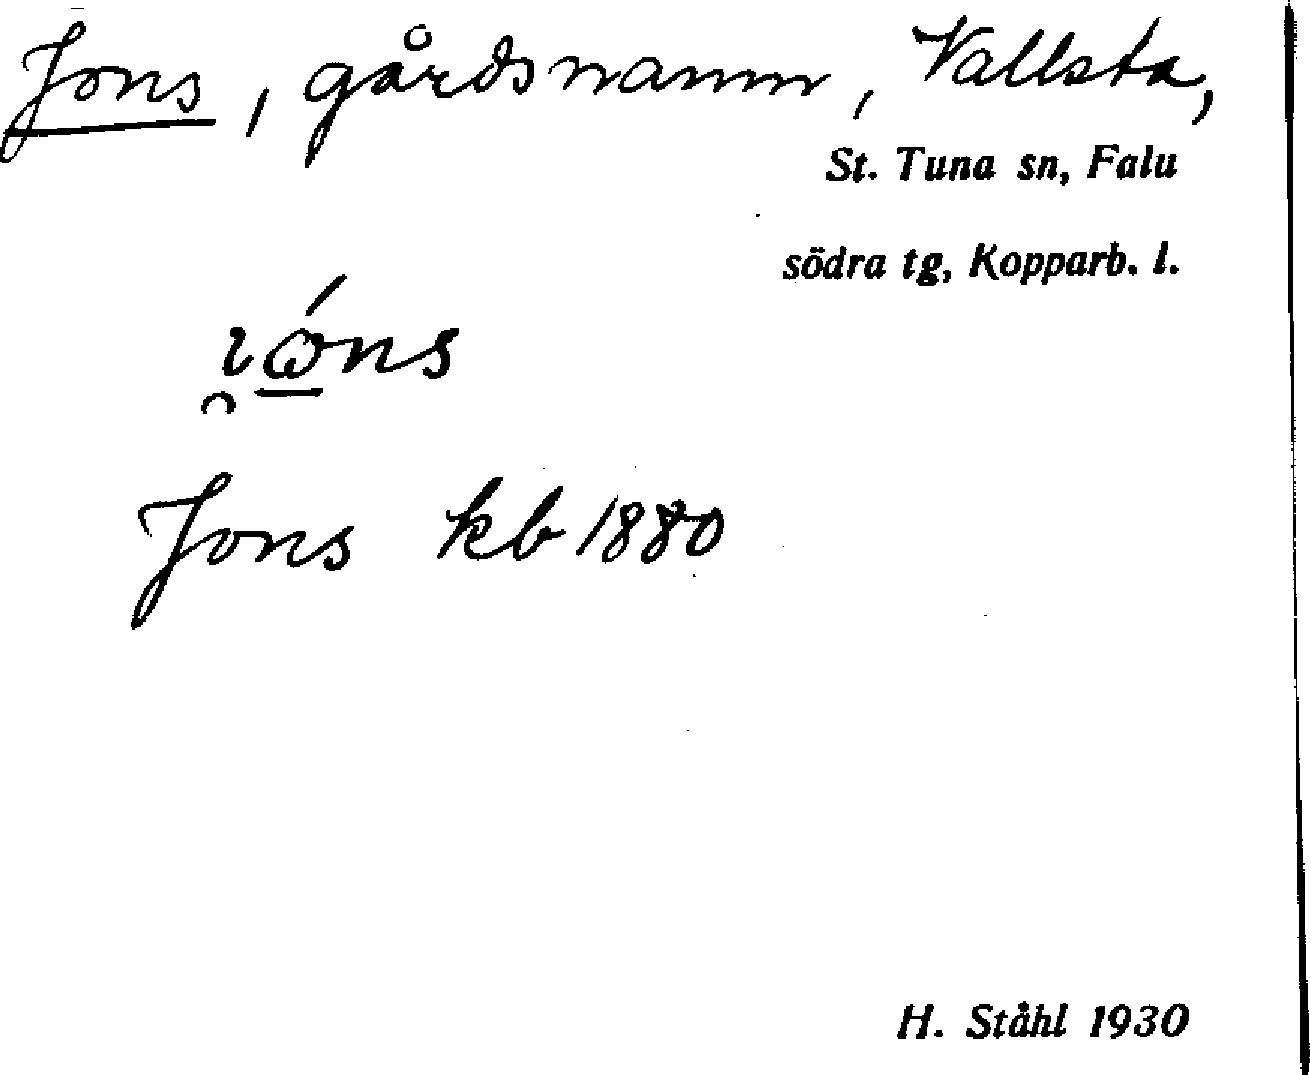 Jons, gårdsnamn, Vallsta,
St. Tuna sn, Falu
södra tg, Kopparb. l.
ı̯ώ̲ns
Jons kb 1880
H. Ståhl 1930